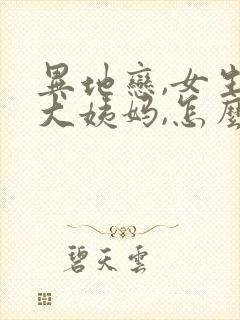 異地戀,女生
大姨媽,怎麼
碧天雲